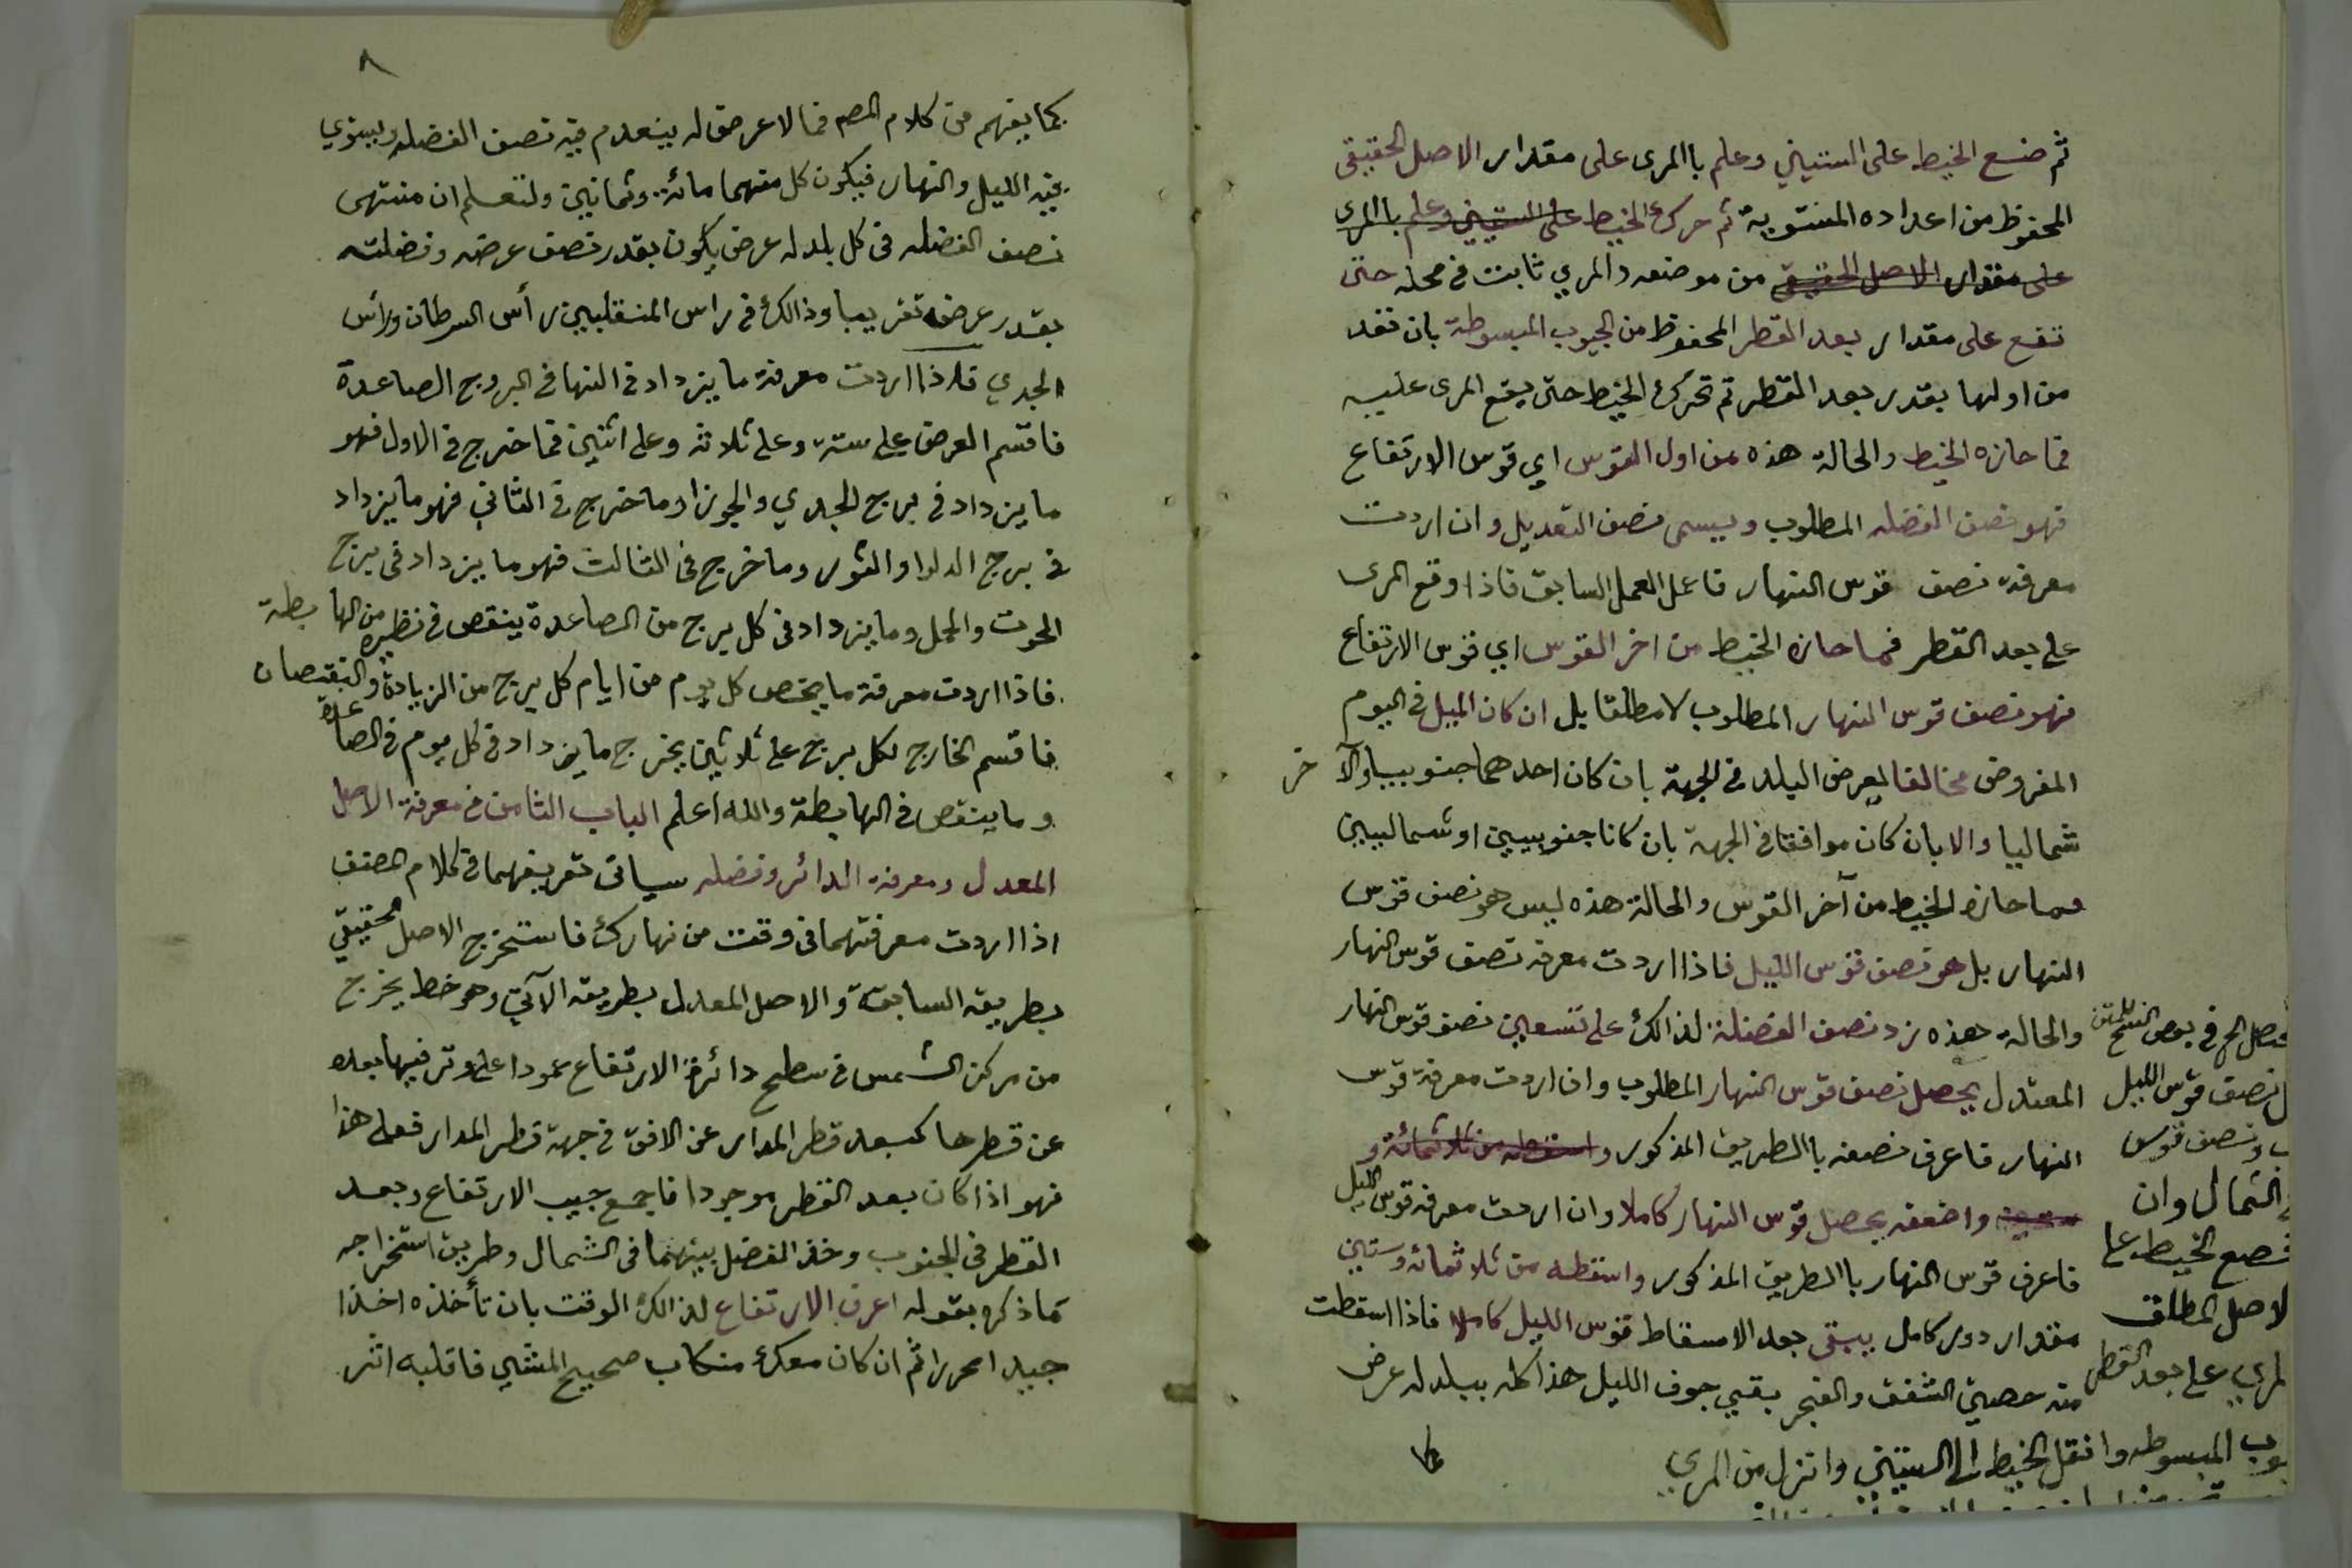 ثم ضع الخيط على الستيني وعلم باالمرى على مقدار الاصل الحقيقى
المحفوظ من اعداده المستوية ثم حرك الخيط على الستيني وعلم باالمرى
على مقدار الاصل الحقيقي من موضعه والمري ثابت في محله حتى
تقع على مقدار بعد القطر المحفوظ من الجيوب المبسوطة بان تعد
من اولها بقدر بعد القطر ثم تحرك الخيط حتى يقع المرى عليه
فما حازه الخيط والحالة هذه من اول القوس اي قوس الارتفاع
فهو نصف الفضله المطلوب ويسمى نصف التعديل وان اردت
معرفة نصف قوس النهار فاعمل العمل السابق فاذا وقع المرى
على بعد القطر فما حازه الخيط من اخر القوس اي قوس الارتفاع
فهو نصف قوس النهار المطلوب لا مطلقا بل ان كان الميل في اليوم
المفروض مخالفا لعرض البلد في الجهة بان كان احدهما جنوبيا والآخر
شماليا والا بان كان موافقا في الجهة بان كانا جنوبيين او شماليين
فما حازه الخيط من آخر القوس والحالة هذه ليس هو نصف قوس
النهار بل هو نصف قوس الليل فاذا اردت معرفة نصف قوس النهار
والحالة هذه زد نصف الفضلة لذالك على تسعين نصف قوس النهار
المعتدل يحصل نصف قوس النهار المطلوب وان اردت معرفة قوس
النهار فاعرف نصفه باالطريق المذكور واسقطه من ثلاثمائة و
ستين واضعفه يحصل قوس النهار كاملا وان اردت معرفة قوس الليل
فاعرف قوس النهار باالطريق المذكور واسقطه من ثلاثمائه وستين
مقدار دور كامل يبقى بعد الاسقاط قوس الليل كاملا فاذا اسقطت
منه حصتي الشفق والفجر بقي جوف الليل هذا كله ببلد له عرض
في بعض النسخ للمتن
نصف قوس الليل
ونصف قوس
الشمال وان
فضع الخيط على
الاصل المطلق
المري على بعد القطر
المبسوطه وانقل الخيط الى الستيني وانزل من المري
٨
كما يفهم من كلام المصم فما لا عرض له ينعدم فيه نصف الفضله ويستوي
فيه الليل والنهار فيكون كل منهما مائة وثمانين ولتعلم ان منتهى
نصف الفضله في كل بلد له عرض يكون بقدر نصف عرضه وفضلته
بقدر عرضه تقريبا وذالك في راس المنقلبين رأس السرطان ورأس
الجدي فاذا اردت معرفة ما يزداد في النها في البروج الصاعدة
فاقسم العرض على ستة وعلى ثلاثه وعلى اثنين فما خرج في الاول فهو
ما يزداد في برج الجدي والجوزا وما خرج في الثاني فهو ما يزداد
في برج الدلو او الثور وما خرج في الثالث فهو ما يزداد في برج
الحوت والحمل وما يزداد في كل برج من الصاعدة ينقص في نظيره من الهابطة
فاذا اردت معرفة ما يخص كل يوم من ايام كل برج من الزيادة والنقصان
فاقسم الخارج لكل برج على ثلاثين يخرج ما يزداد في كل يوم في الصاعدة
وما ينقص في الهابطة والله اعلم الباب الثامن في معرفة الاصل
المعدل ومعرفة الدائر وفضله سياتي تعريفهما في كلام المصنف
اذا اردت معرفتهما في وقت من نهارك فاستخرج الاصل الحقيقي
بطريقه السابقة والاصل المعدل بطريقه الآتي وهو خط يخرج
من مركز الشمس في سطح دائرة الارتفاع عمودا على وتر فيها بعده
عن قطرها كبعد قطر المدار عن الافق في جهة قطر المدار فعلى هذا
فهو اذا كان بعد القطر موجودا فاجمع جيب الارتفاع وبعد
القطر في الجنوب وخذ الفضل بينهما في الشمال وطريق استخراجه
ما ذكره بقوله اعرف الارتفاع لذالك الوقت بان تأخذه اخذا
جيدا محررا ثم ان كان معك منكاب صحيح المشي فاقلبه اثر